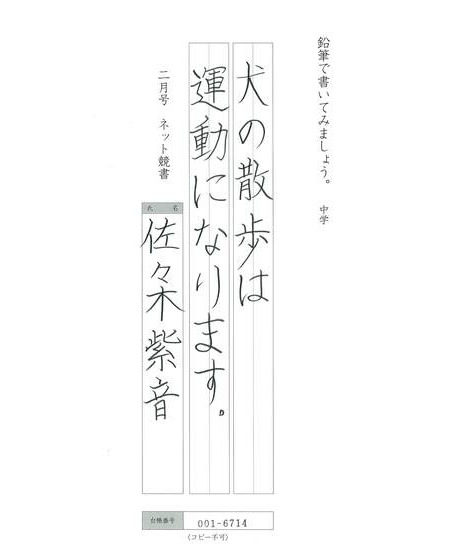 鉛筆で書いてみましょう。 中学
犬の散歩は
運動になります。
二月号 ネット競書
氏名
佐々木紫音
台帳番号 001-6714
(コピー不可)